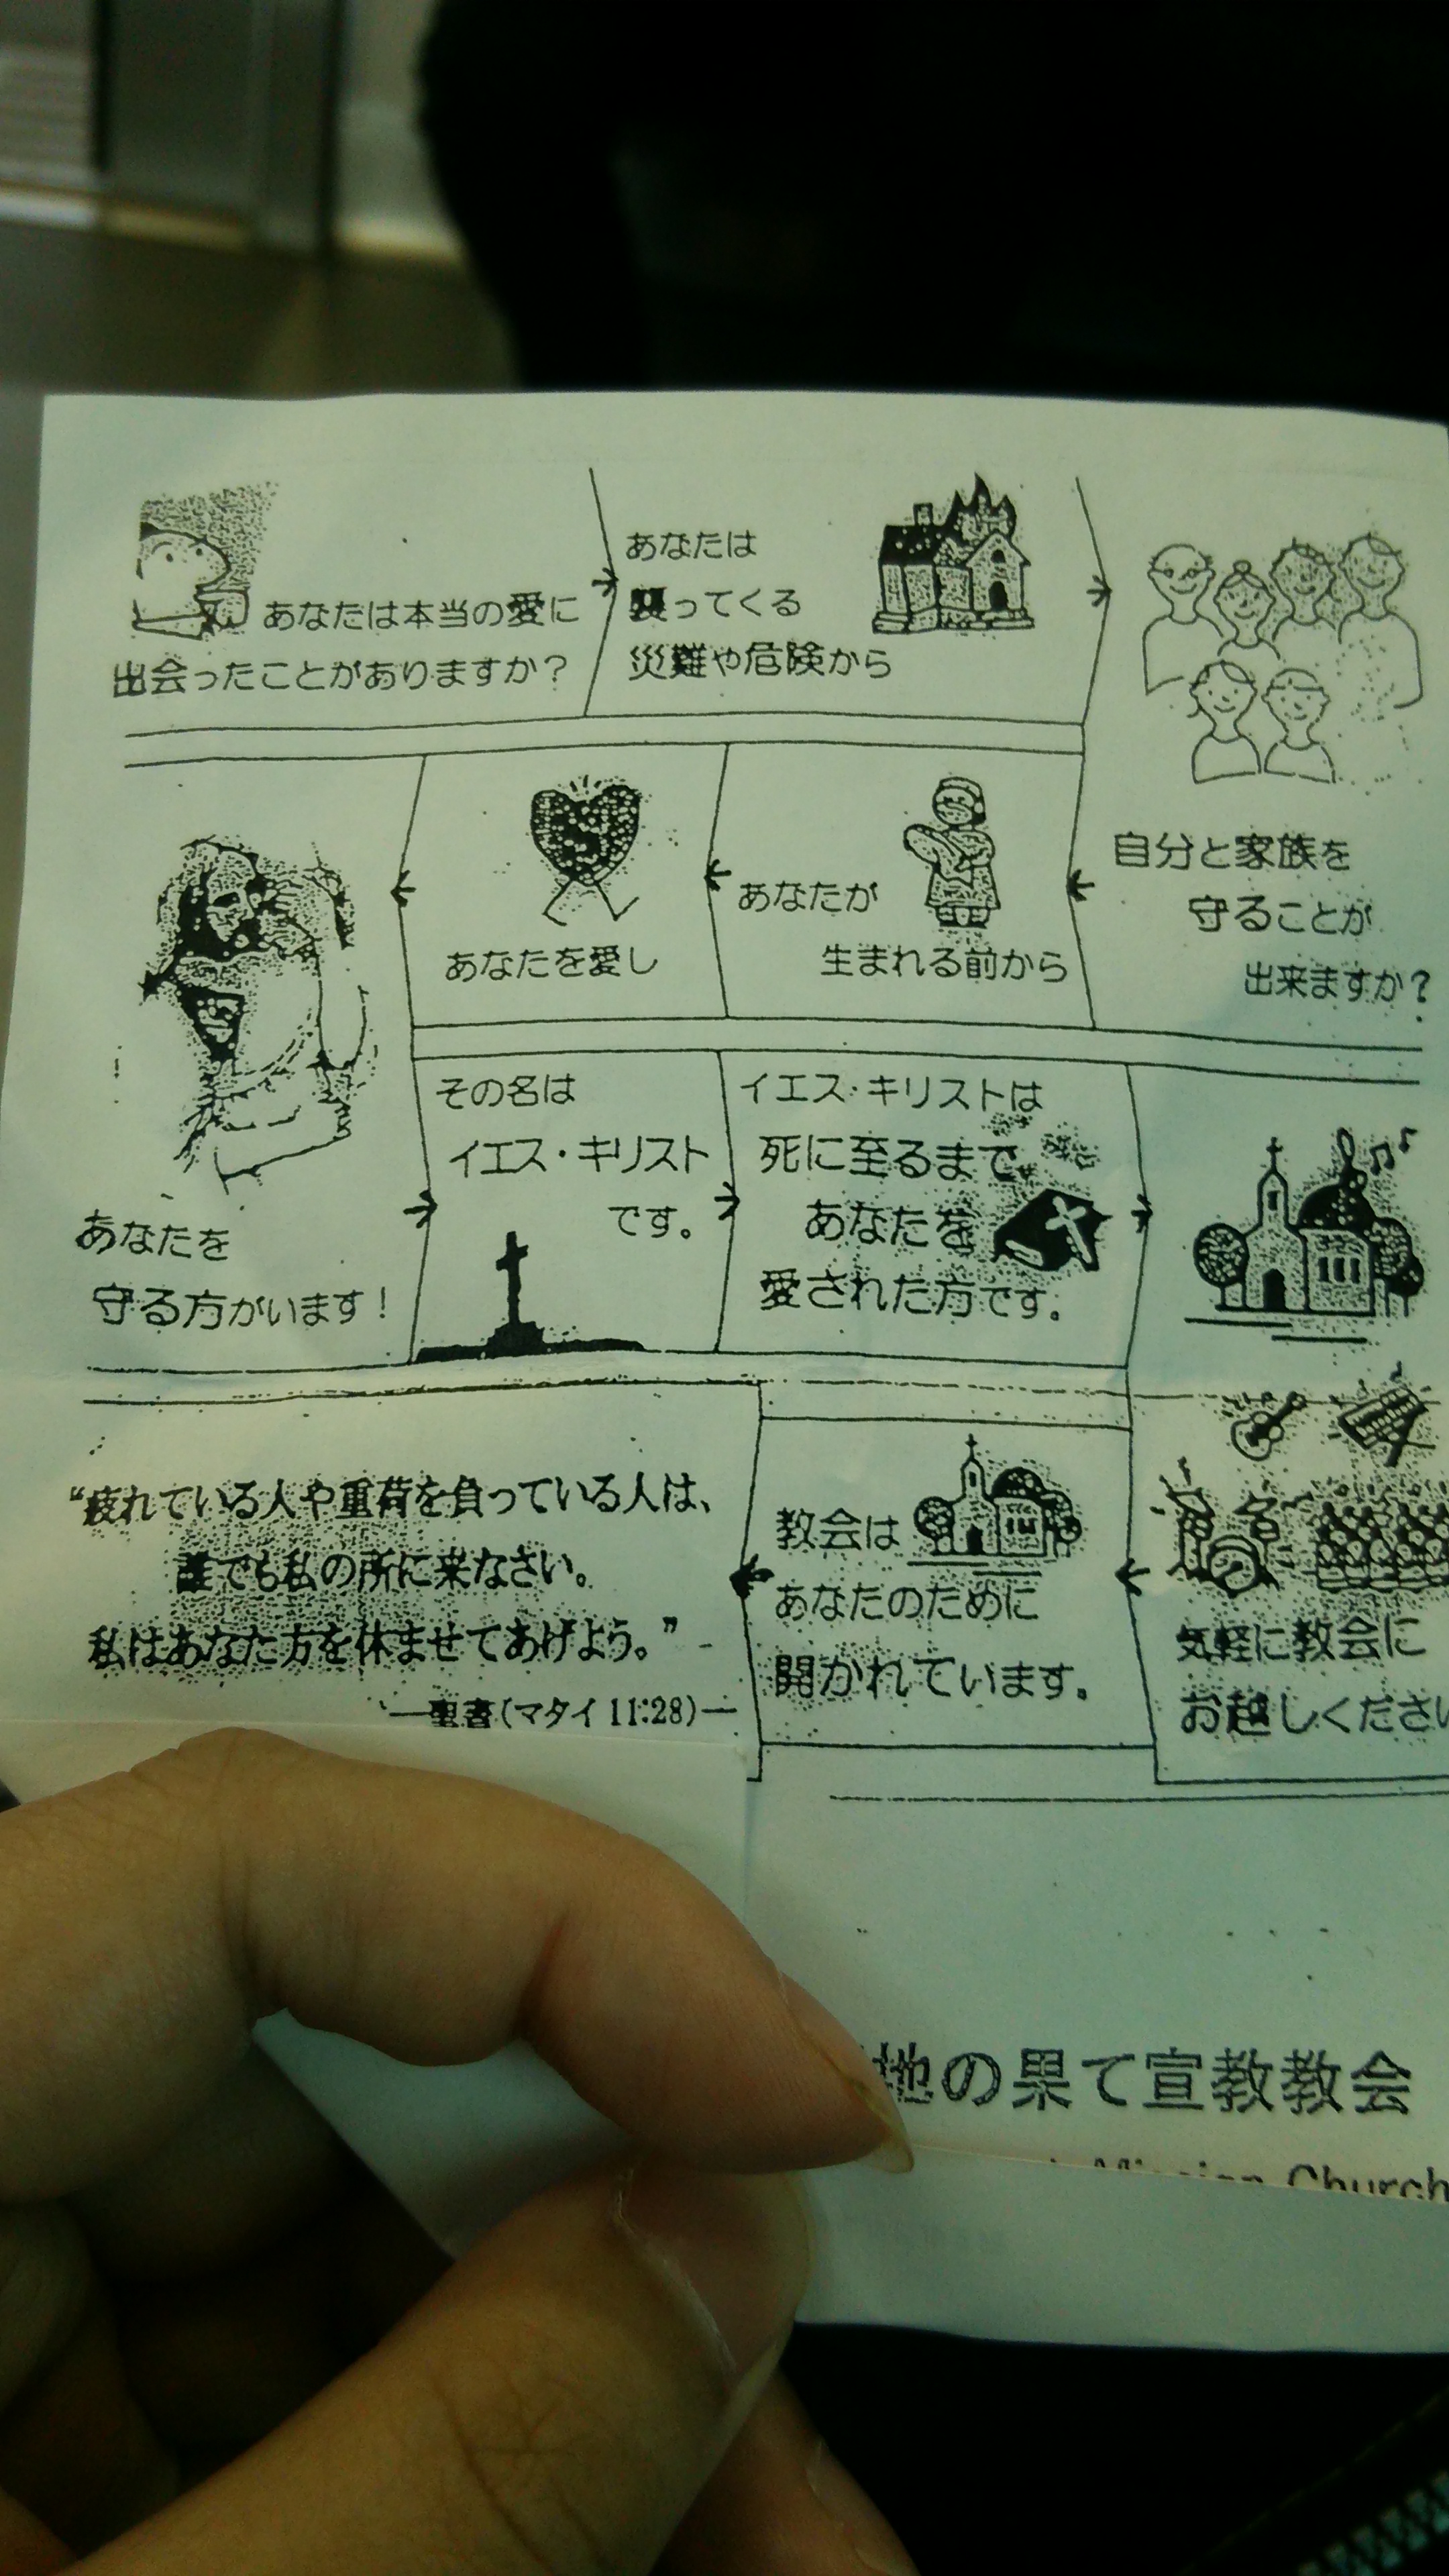 あなたは本当の愛に
出会ったことがありますか？
あなたは
襲ってくる
災難や危険から
自分と家族を
守ることが
出来ますか？
あなたが
生まれる前から
あなたを愛し
あなたを
守る方がいます！
その名は
イエス・キリスト
です。
イエス・キリストは
死に至るまで、
あなたを
愛された方です。
気軽に教会に
お越しくださ
教会は
あなたのために
開かれています。
“疲れている人や重荷を負っている人は、
誰でも私の所に来なさい。
私はあなた方を休ませてあげよう。”
—聖書(マタイ 11:28)—
地の果て宣教教会
Mission Church